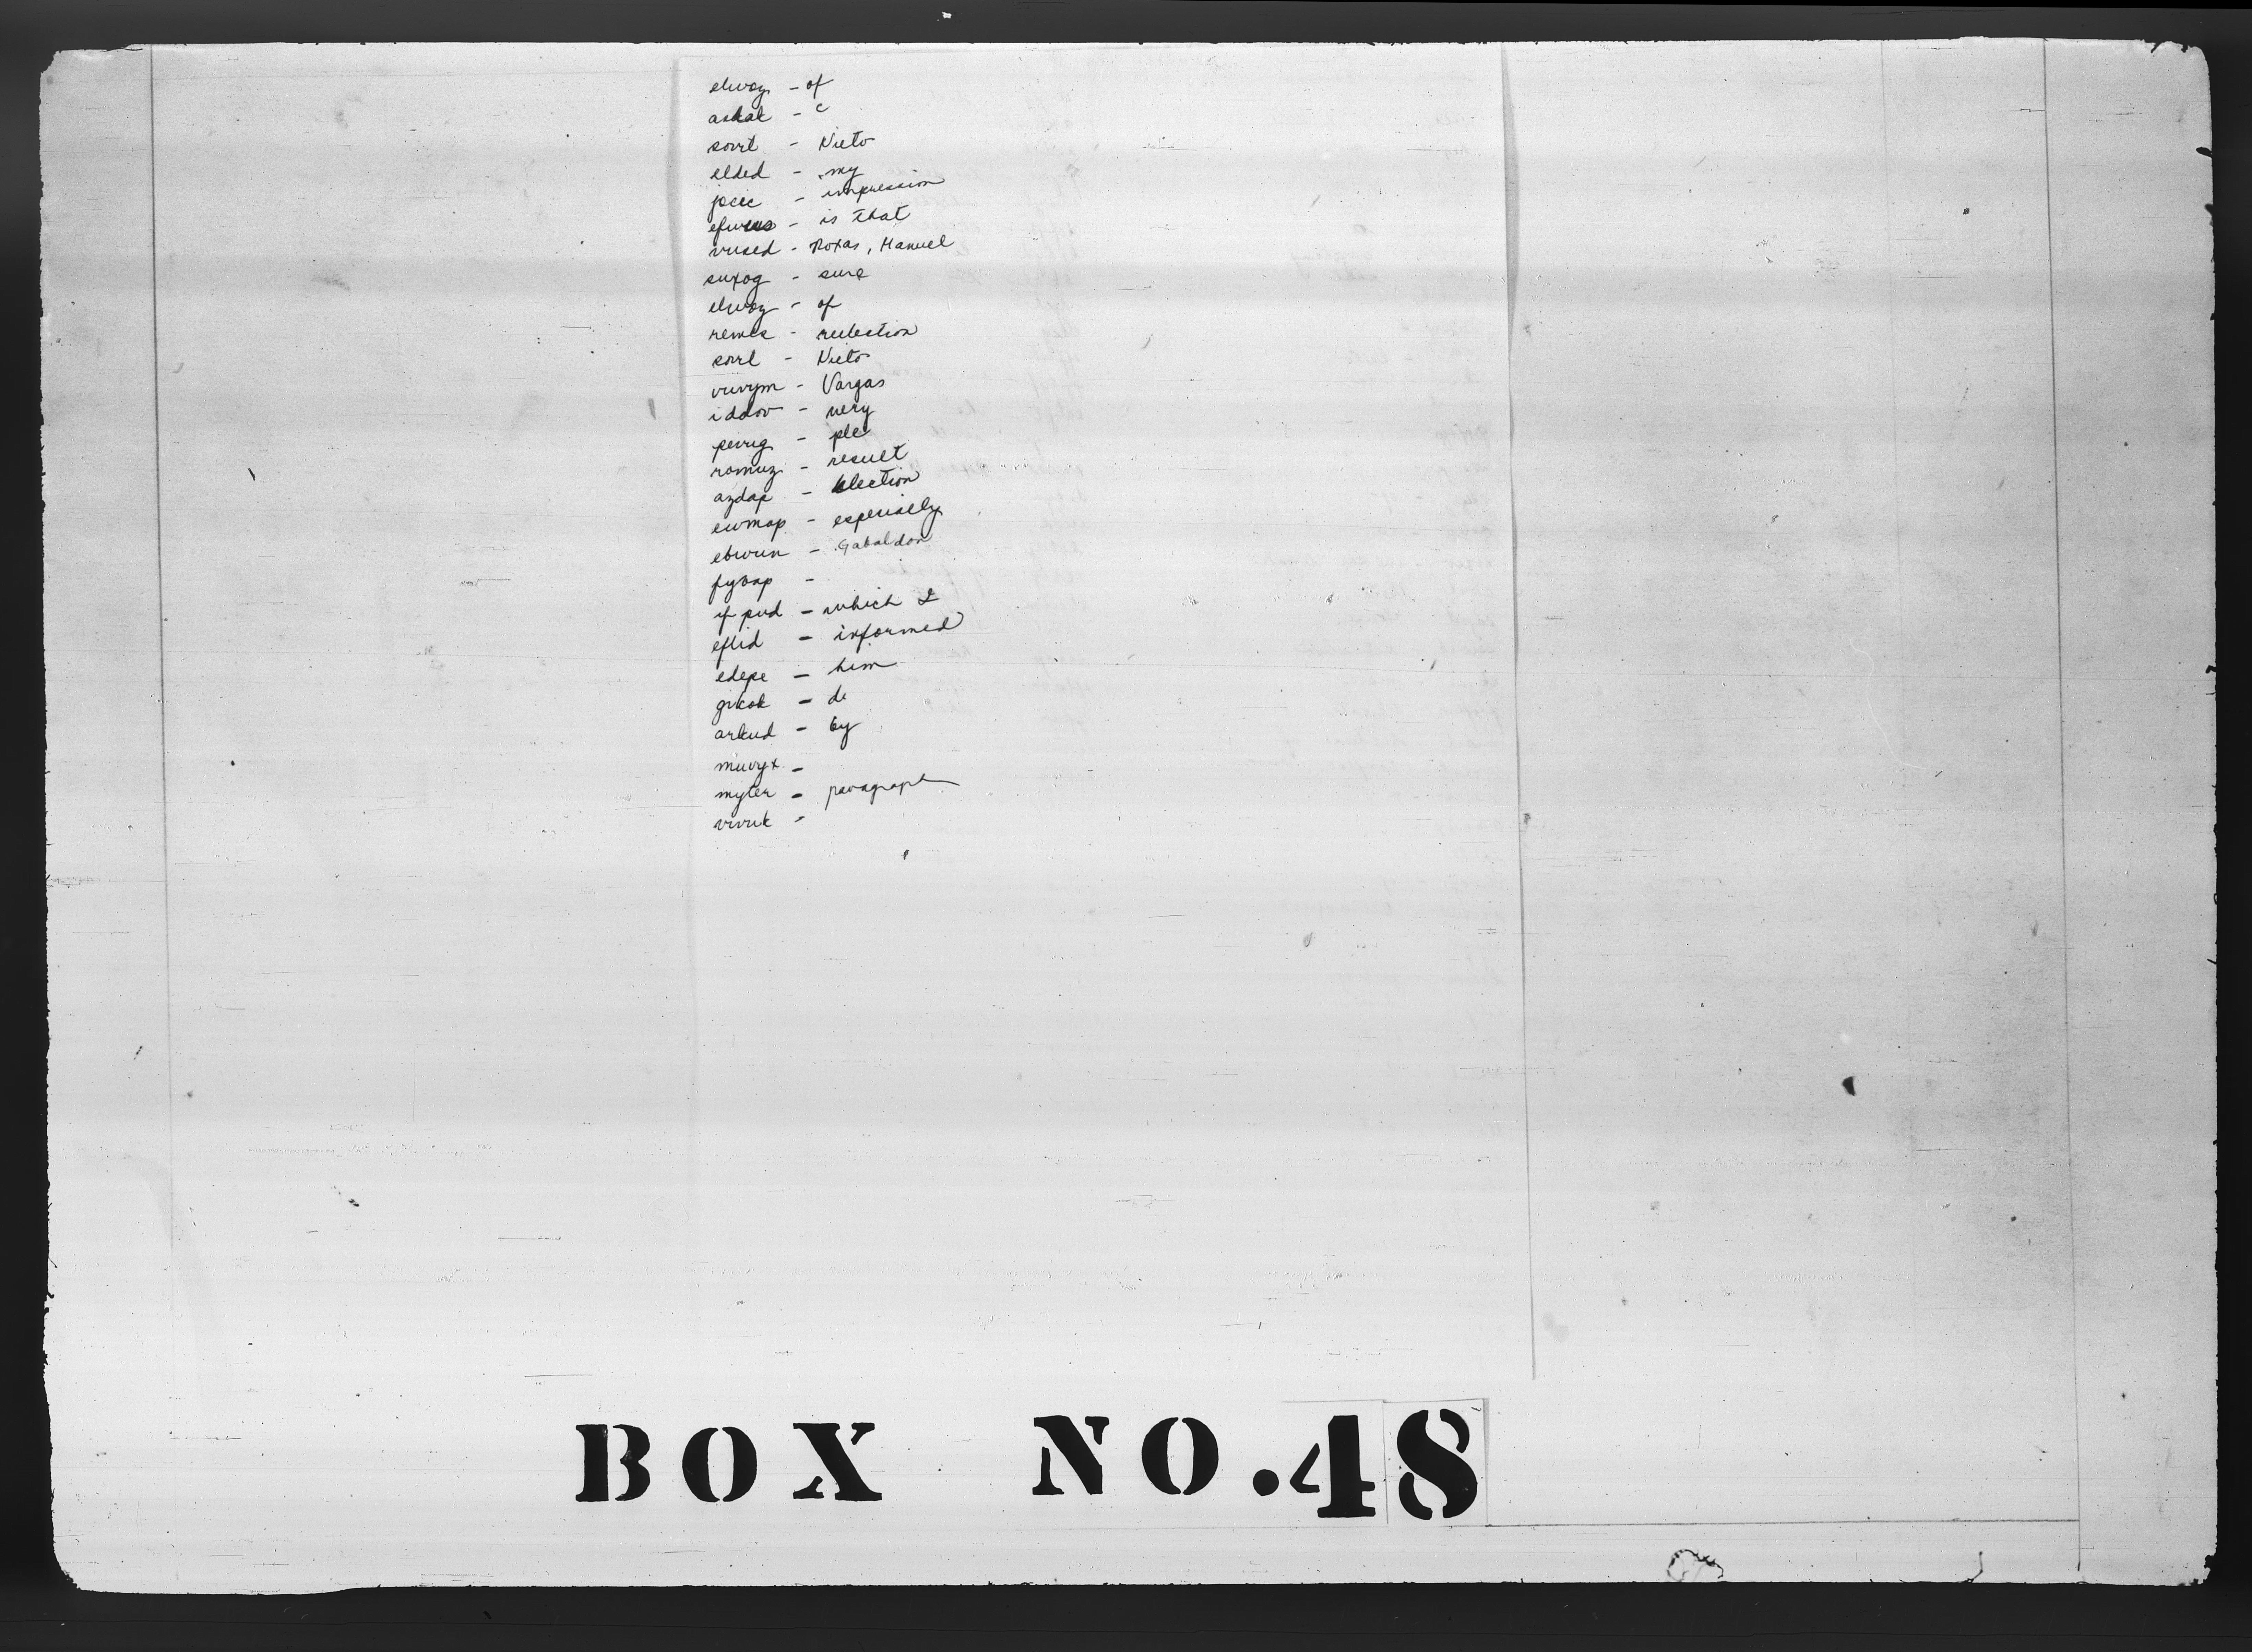 elwoz - of
askal - c
sovrl - Nieto
elded - my
jocic - impression
efwus - is that
vused - Roxas, Manuel
suxog - sure
elwoz - of
remes - reelection
sovrl - Nieto
vuvym - Vargas
iddov - very
pevug - ple
romuz - result
azdap - election
ewmap - especially
ebwun - Gabaldon
fyvap -
if pud - which I
eflid - informed
edepe - him
gikok - de
arkud - by
muvyx -
myter - paragraph
vivuk -
BOX NO. 48